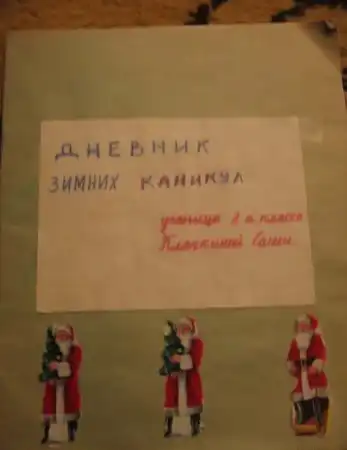 ДНЕВНИК
ЗИМНИХ КАНИКУЛ
ученица 2 а класса
Клочкиной Саши